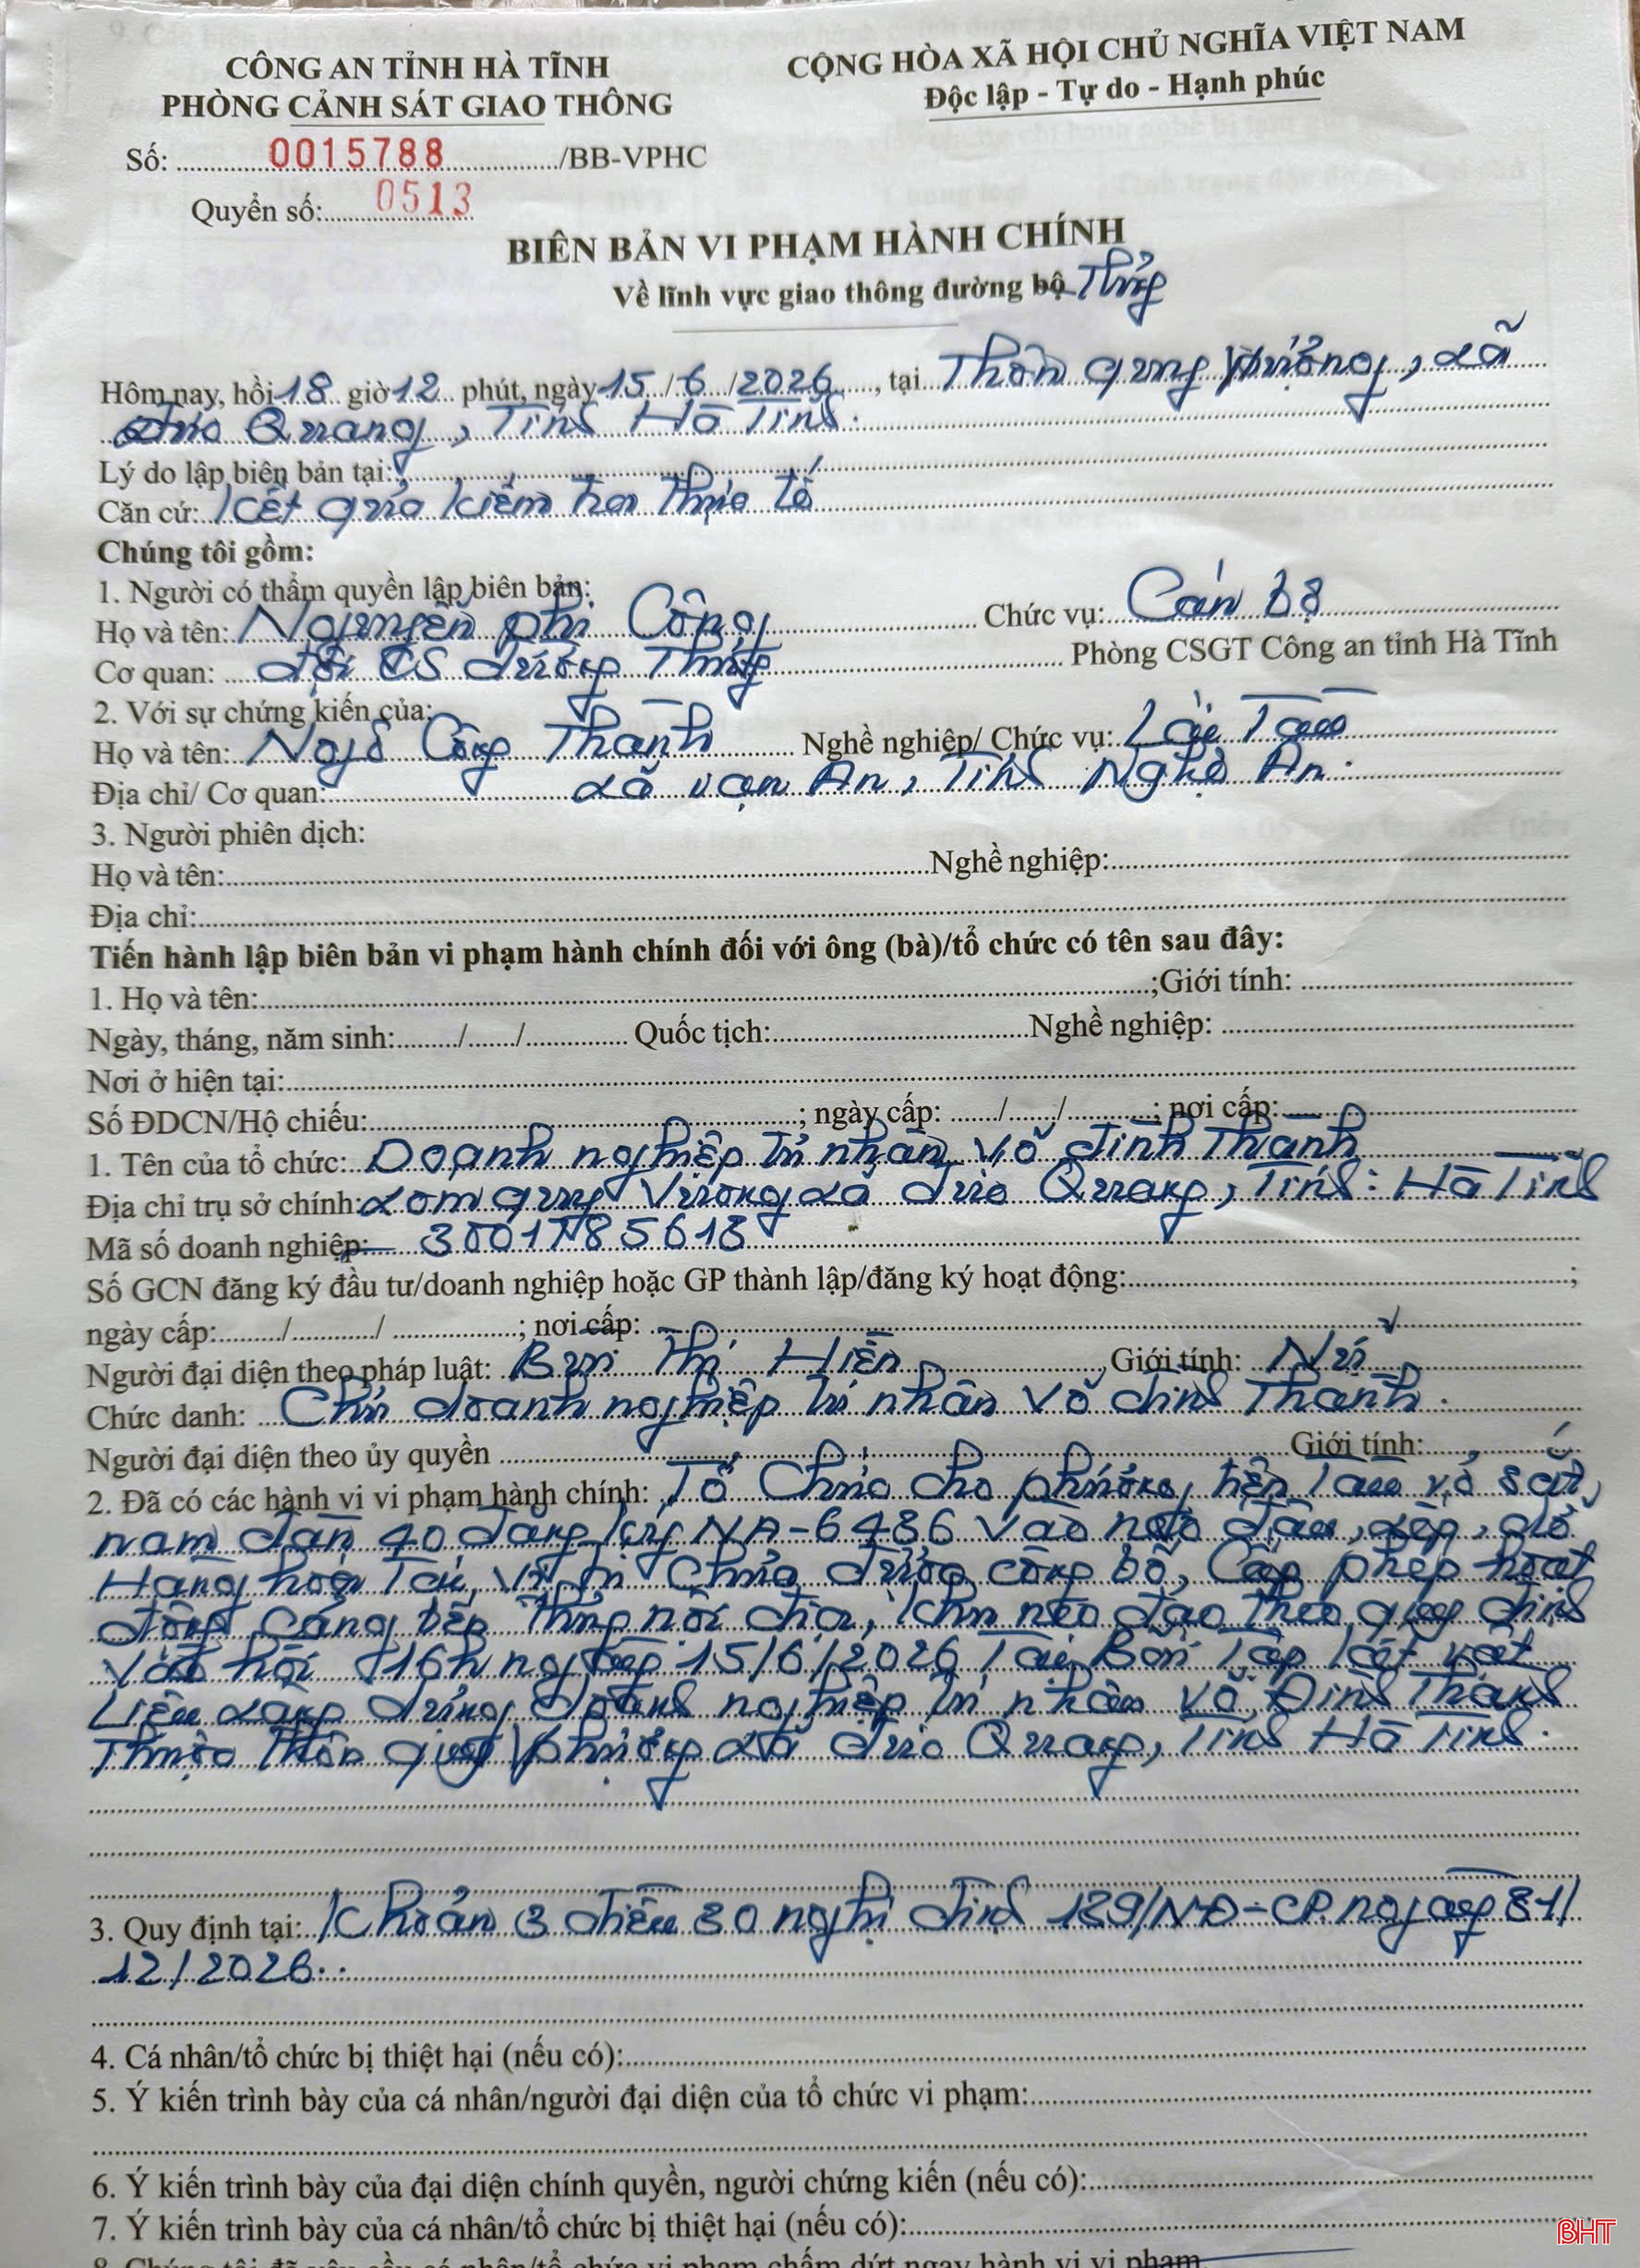 CÔNG AN TỈNH HÀ TĨNH
PHÒNG CẢNH SÁT GIAO THÔNG
CỘNG HÒA XÃ HỘI CHỦ NGHĨA VIỆT NAM
Độc lập - Tự do - Hạnh phúc
Số: 0015788 /BB-VPHC
Quyển số: 0513
BIÊN BẢN VI PHẠM HÀNH CHÍNH
Về lĩnh vực giao thông đường bộ Thủy
Hôm nay, hồi 18 giờ 12 phút, ngày 15 / 6 / 2026, tại Thôn Quy Vượng, xã
Đức Quang, Tỉnh Hà Tĩnh.
Lý do lập biên bản tại:
Căn cứ: Kết quả kiểm tra thực tế
Chúng tôi gồm:
1. Người có thẩm quyền lập biên bản:
Họ và tên: Nguyễn Phi Công Chức vụ: Cán bộ
Cơ quan: Đội CS đường Thủy Phòng CSGT Công an tỉnh Hà Tĩnh
2. Với sự chứng kiến của:
Họ và tên: Ngô Công Thành Nghề nghiệp/ Chức vụ: Lái Tàu
Địa chỉ/ Cơ quan: xã Vạn An, Tỉnh Nghệ An.
3. Người phiên dịch:
Họ và tên: Nghề nghiệp:
Địa chỉ:
Tiến hành lập biên bản vi phạm hành chính đối với ông (bà)/tổ chức có tên sau đây:
1. Họ và tên: ;Giới tính:
Ngày, tháng, năm sinh: / / Quốc tịch: Nghề nghiệp:
Nơi ở hiện tại:
Số ĐDCN/Hộ chiếu: ; ngày cấp: / / ; nơi cấp:
1. Tên của tổ chức: Doanh nghiệp tư nhân Võ Đình Thanh
Địa chỉ trụ sở chính: xóm Quy Vượng xã Đức Quang, Tỉnh: Hà Tĩnh
Mã số doanh nghiệp: 3001785618
Số GCN đăng ký đầu tư/doanh nghiệp hoặc GP thành lập/đăng ký hoạt động: ;
ngày cấp: / / ; nơi cấp:
Người đại diện theo pháp luật: Bùi Thị Hiền, Giới tính: Nữ
Chức danh: Chủ doanh nghiệp tư nhân Võ Đình Thanh.
Người đại diện theo ủy quyền Giới tính:
2. Đã có các hành vi vi phạm hành chính: Tổ Chức cho phương tiện Tàu vỏ sắt,
nam đàn 40, đăng ký NA-6486 vào neo đậu, xếp, dỡ
Hàng hóa Tại vị trí Chưa được công bố, Cấp phép hoạt
động cảng bến Thủy nội địa, khu neo đậu Theo quy định
vào hồi 16h ngày 15/6/2026 Tại Bãi Tập kết vật
Liệu xây dựng doanh nghiệp tư nhân Võ Đình Thanh
Thuộc Thôn Quy Vượng xã Đức Quang, Tỉnh Hà Tĩnh.
3. Quy định tại: Khoản 3 điều 30 nghị định 139/NĐ-CP. ngày 31/
12/2026.
4. Cá nhân/tổ chức bị thiệt hại (nếu có):
5. Ý kiến trình bày của cá nhân/người đại diện của tổ chức vi phạm:
6. Ý kiến trình bày của đại diện chính quyền, người chứng kiến (nếu có):
7. Ý kiến trình bày của cá nhân/tổ chức bị thiệt hại (nếu có):
8. Chúng tôi đã yêu cầu cá nhân/tổ chức vi phạm chấm dứt ngay hành vi vi phạm.
BHT